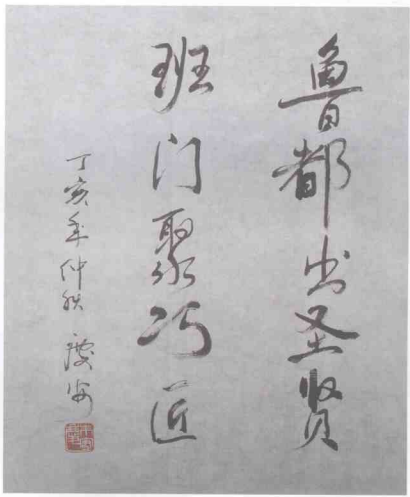 鲁都出圣贤
班门聚巧匠
丁亥年仲秋